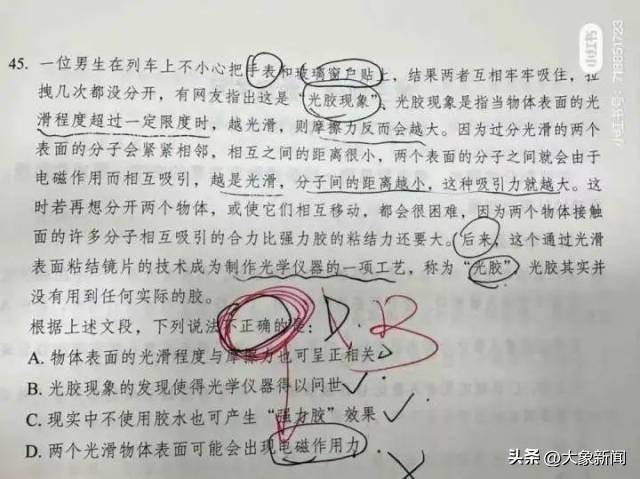 小红书
小红书号：718851723
45. 一位男生在列车上不小心把手表和玻璃窗户贴上，结果两者互相牢牢吸住，拉
拽几次都没分开，有网友指出这是“光胶现象”。光胶现象是指当物体表面的光
滑程度超过一定限度时，越光滑，则摩擦力反而会越大。因为过分光滑的两个
表面的分子会紧紧相邻，相互之间的距离很小，两个表面的分子之间就会由于
电磁作用而相互吸引，越是光滑，分子间的距离越小，这种吸引力就越大。这
时若再想分开两个物体，或使它们相互移动，都会很困难，因为两个物体接触
面的许多分子相互吸引的合力比强力胶的粘结力还要大。后来，这个通过光滑
表面粘结镜片的技术成为制作光学仪器的一项工艺，称为“光胶”，光胶其实并
没有用到任何实际的胶。
根据上述文段，下列说法不正确的是： D. B
A. 物体表面的光滑程度与摩擦力也可呈正相关
B. 光胶现象的发现使得光学仪器得以问世
C. 现实中不使用胶水也可产生“强力胶”效果
D. 两个光滑物体表面可能会出现电磁作用力
头条 @大象新闻